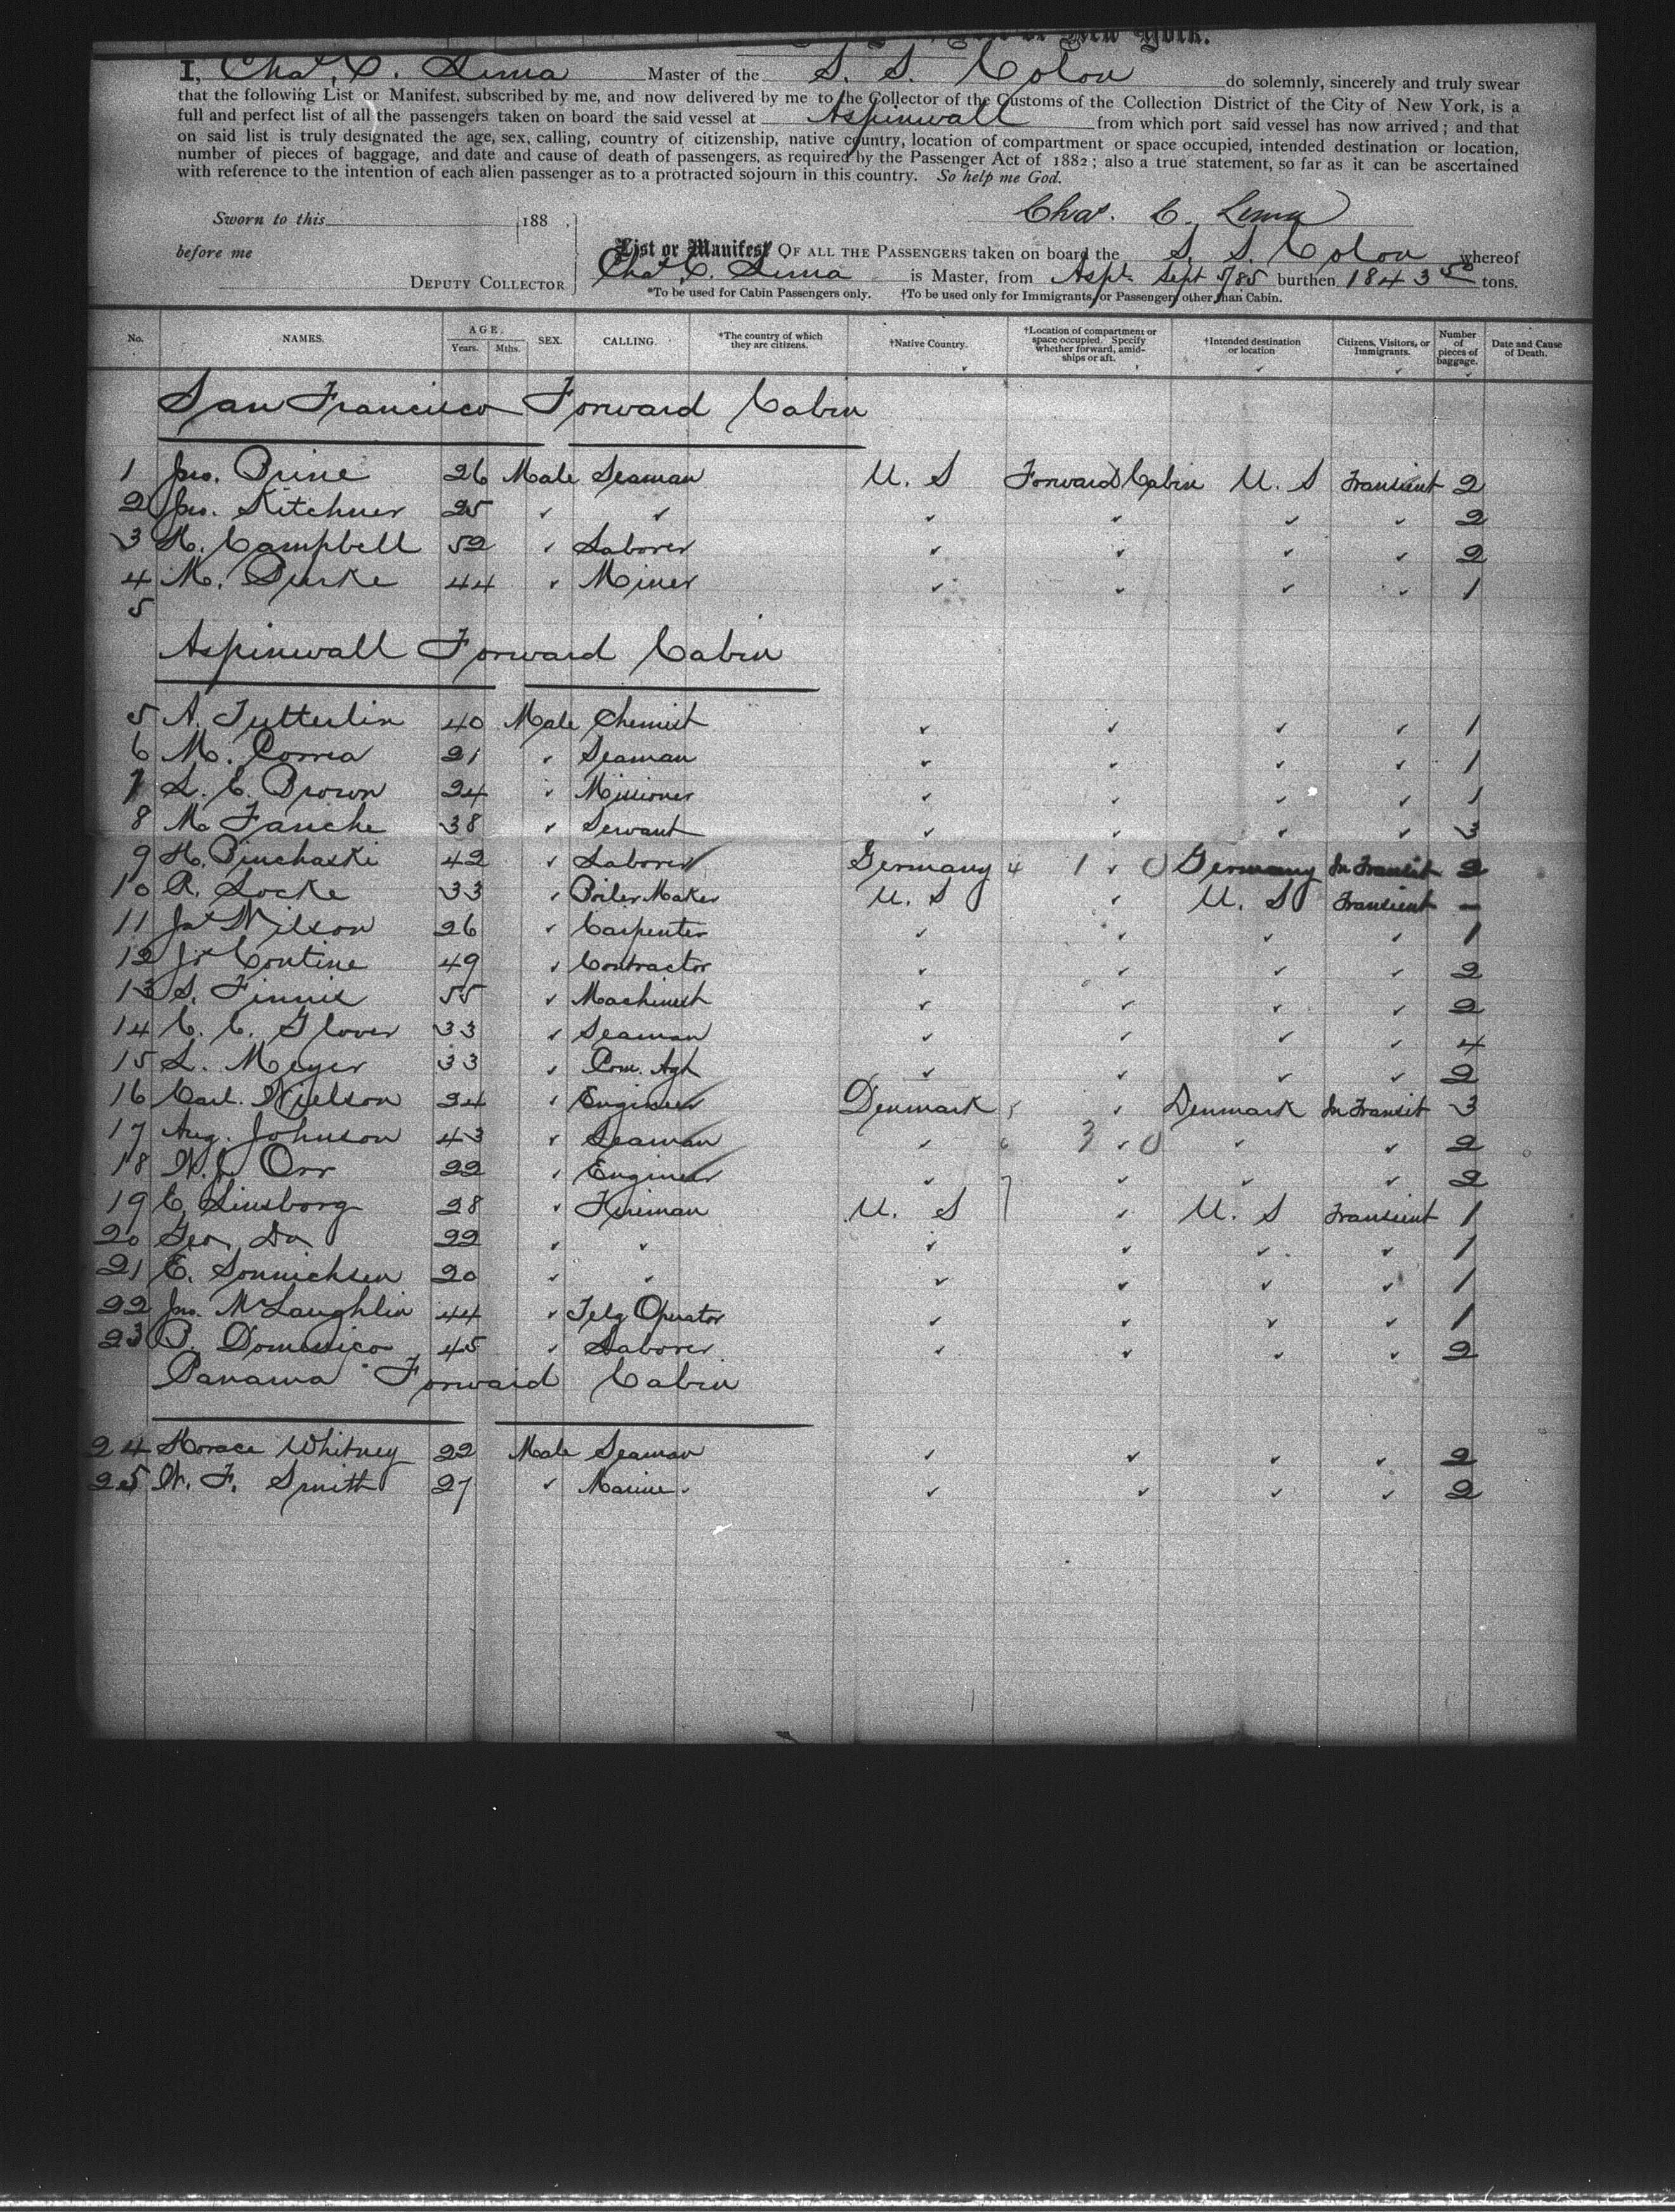 New York.
I, Chas. C. Lima Master of the S. S. Colon do solemnly, sincerely and truly swear
that the following List or Manifest, subscribed by me, and now delivered by me to the Collector of the Customs of the Collection District of the City of New York, is a
full and perfect list of all the passengers taken on board the said vessel at Aspinwall from which port said vessel has now arrived; and that
on said list is truly designated the age, sex, calling, country of citizenship, native country, location of compartment or space occupied, intended destination or location,
number of pieces of baggage, and date and cause of death of passengers, as required by the Passenger Act of 1882; also a true statement, so far as it can be ascertained
with reference to the intention of each alien passenger as to a protracted sojourn in this country. So help me God.
Chas. C. Lima
Sworn to this 188 .
before me
DEPUTY COLLECTOR
List or Manifest OF ALL THE PASSENGERS taken on board the S. S. Colon whereof
Chas. C. Lima is Master, from Aspl. Sept 5/85 burthen 1843 50 tons.
*To be used for Cabin Passengers only. †To be used only for Immigrants, or Passengers other than Cabin.
No. NAMES. AGE. Years. Mths. SEX. CALLING. *The country of which they are citizens. †Native Country. †Location of compartment or space occupied. Specify whether forward, amidships or aft. †Intended destination or location Citizens, Visitors, or Immigrants. Number of pieces of baggage. Date and Cause of Death.
San Francisco Forward Cabin
1 Jno. Prine 26 Male Seaman U. S Forward Cabin U. S Transient 2
2 Jno. Kitchner 25 " " " " " " 2
3 H. Campbell 52 " Laborer " " " " 2
4 M. Burke 44 " Miner " " " " 1
5
Aspinwall Forward Cabin
5 A. Tutterlin 40 Male Chemist " " " " 1
6 M. Correa 21 " Seaman " " " " 1
7 L. E. Brown 24 " Missioner " " " " 1
8 M Fanche 38 " Servant " " " " 3
9 H. Pinchaski 42 " Laborer Germany 4 1 " 0 Germany In Transit 2
10 R. Locke 33 " Boiler Maker U. S " U. S Transient -
11 Jas Wilson 26 " Carpenter " " " " 1
12 Js Contine 49 " Contractor " " " " 2
13 S. Finnie 55 " Machinist " " " " 2
14 C. C. Glover 33 " Seaman " " " " 4
15 L. Meyer 33 " Com. Agt " " " " 2
16 Carl. Nielson 24 " Engineer Denmark 5 " Denmark In Transit 3
17 Aug. Johnson 43 " Seaman " 6 3 " 0 " " 2
18 W. J. Orr 22 " Engineer " 7 " " " 2
19 C. Linsborg 28 " Fireman U. S " U. S Transient 1
20 Geo. Do 22 " " " " " " 1
21 E. Sonnichsen 20 " " " " " " 1
22 Jno. McLaughlin 44 " Telg Operator " " " " 1
23 P. Domenico 45 " Laborer " " " " 2
Panama Forward Cabin
24 Horace Whitney 22 Male Seaman " " " " 2
25 W. F. Smith 27 " Marine. " " " " 2